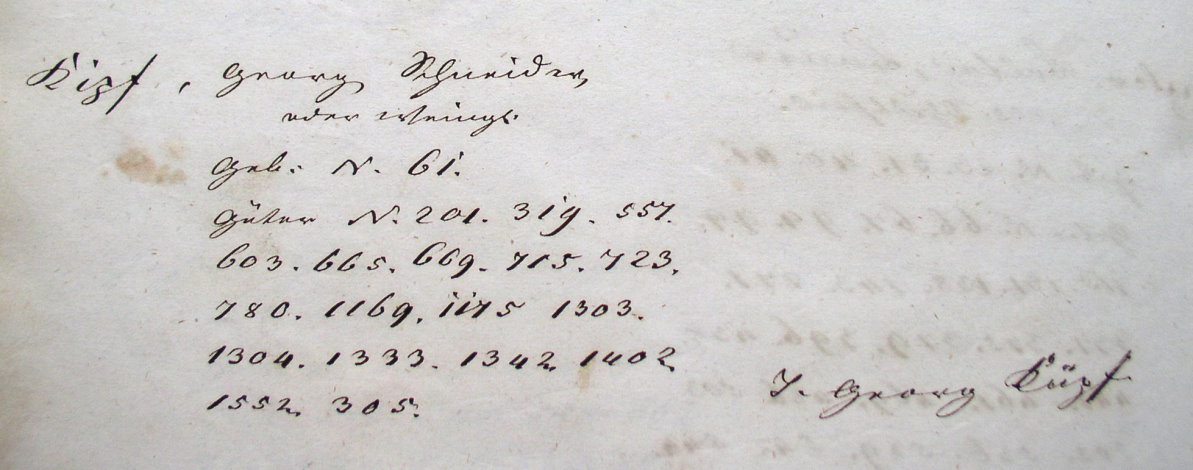 Kipf, Georg Schneider,
oder Weing.
Geb. N. 61.
Güter N. 201. 319. 557.
603. 665. 669. 715. 723.
780. 1169. 1175 1303.
1304. 1333. 1342. 1402.
1552. 305.
J. Georg Küpf